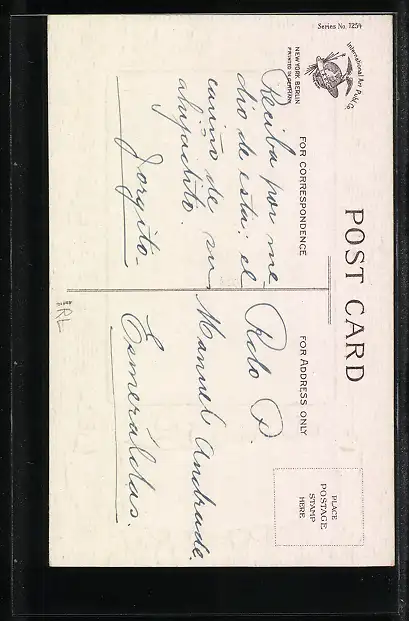 Series No. 1254
International Art Publ. Co.
NEW YORK BERLIN
PRINTED IN GERMANY
POST CARD
FOR CORRESPONDENCE
Reciba por me-
dio de esta: el
cariño de su
ahijadito.
Jorgito.
FOR ADDRESS ONLY
PLACE
POSTAGE
STAMP
HERE
Rdo P.
Manuel Andrade.
Esmeraldas.
RL